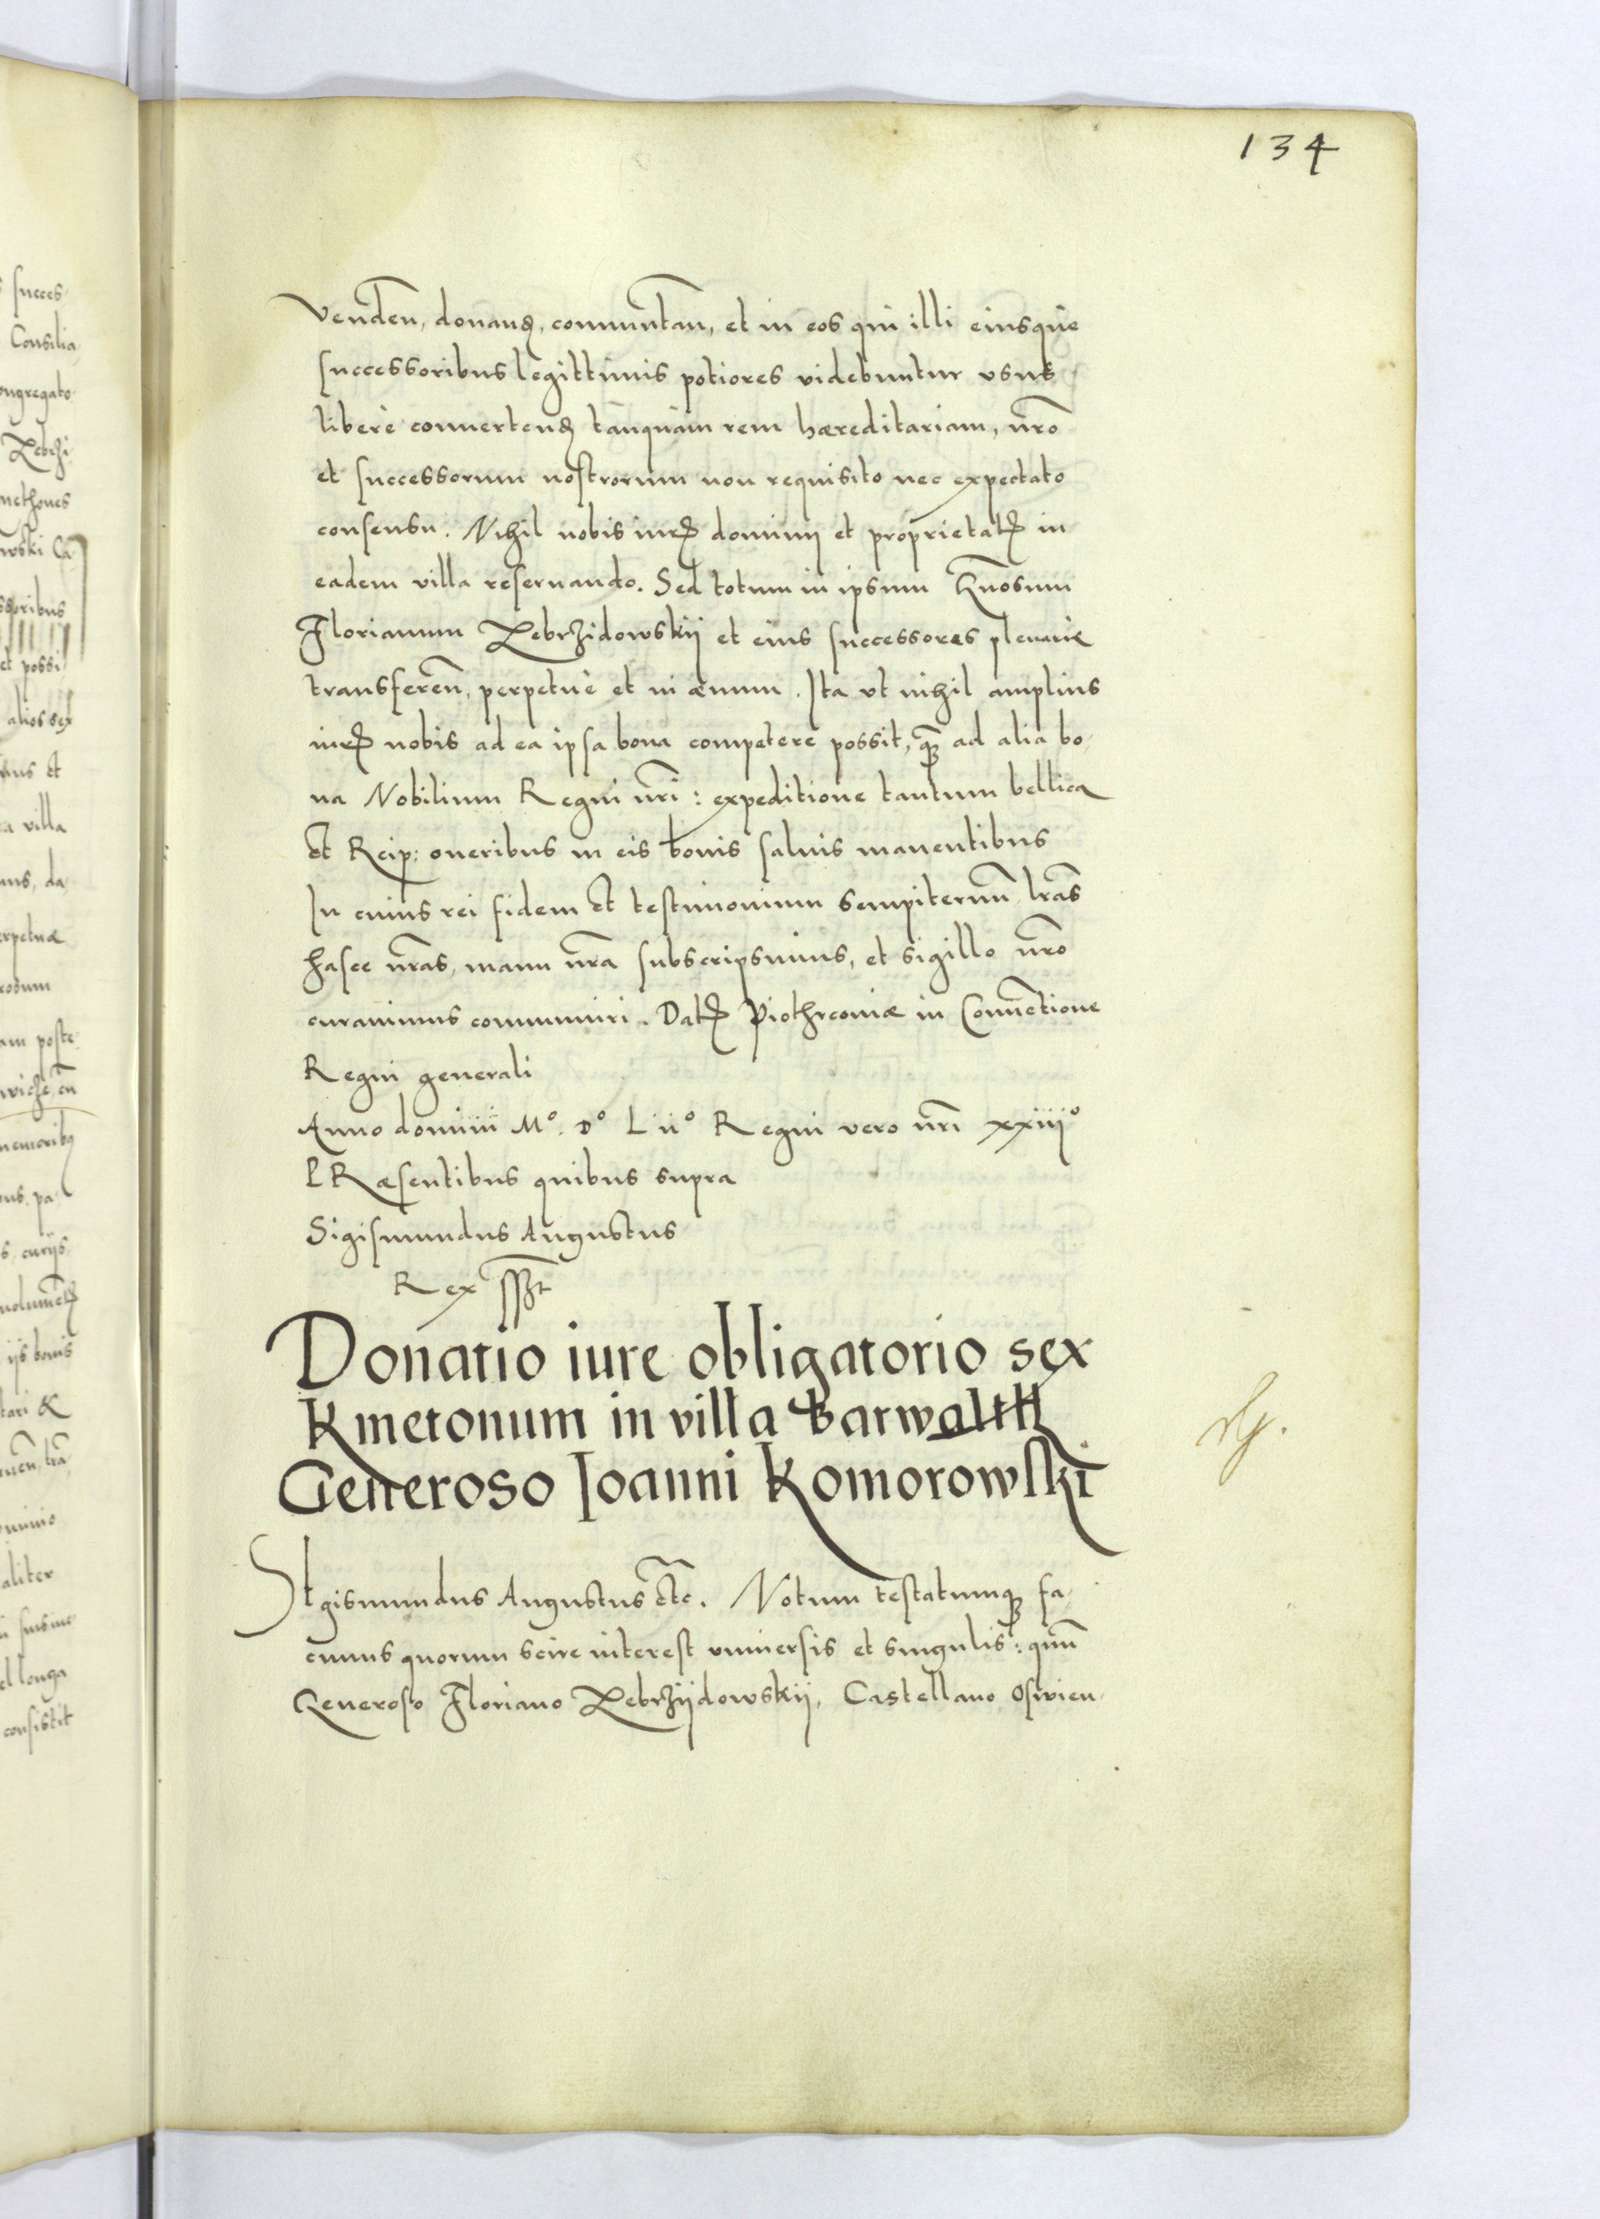 134
Venden, donand, commutan, et in eos qui illi eiusque
successoribus legittimis potiores videbuntur usus
liberè convertend tanquàm rem hæreditariam, nr̃o
et successorum nostrorum non requisito nec expectato
consensu. Nihil nobis iur dominij et proprietat in
eadem villa reservando. Sed totum in ipsum Gñosum
Florianum Zebrzidowskij et eius successores plenariè
transferen̄, perpetuè et in ævum. Ita ut nihil amplius
iur nobis ad ea ipsa bona competere possit, quā ad alia bo-
na Nobilium Regni nr̃i: expeditione tantum bellica
et Reip: oneribus in eis bonis salvis manentibus
In cuius rei fidem et testimonium sempiternū lr̃as
hasce nr̃as, manu nr̃a subscripsimus, et sigillo nr̃o
curavimus communiri. Dat Piothrcoviæ in Convētione
Regni generali
Anno domini Mº. Dº Lijº Regni vero nr̃i xxiijº
PRæsentibus quibus supra
Sigismundus Augustus
Rex sspt
Donatio iure obligatorio sex
Kmetonum in villa Barwalth
Generoso Ioanni Komorowski
SIgismundus Augustus etc. Notum testatumque fa-
cimus quorum scire interest universis et singulis: quū
Generoso Floriano Zebrzijdowskij, Castellano Oswien-
succes-
Consilia
ongregato
Zebrzi
methones
wski Ca
ssoribus
et possi
alios sex
villa
da-
erpetuæ
poste-
curijs
bonis
aliter
longa
consistit